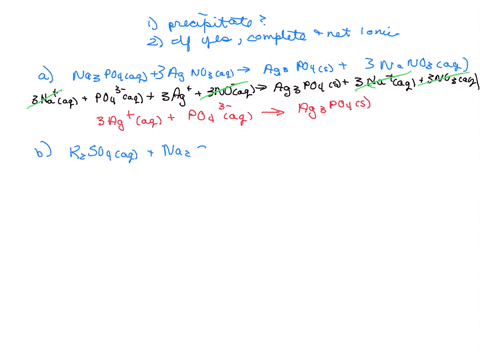 1) precipitate?
2) If yes, complete & net Ionic
a) Na3PO4(aq) + 3AgNO3(aq) → Ag3PO4(s) + 3NaNO3(aq)
3Na+(aq) + PO4 3-(aq) + 3Ag+ + 3NO3-(aq) → Ag3PO4(s) + 3Na+(aq) + 3NO3-(aq)
3Ag+(aq) + PO4 3-(aq) → Ag3PO4(s)
b) K2SO4(aq) + Na2